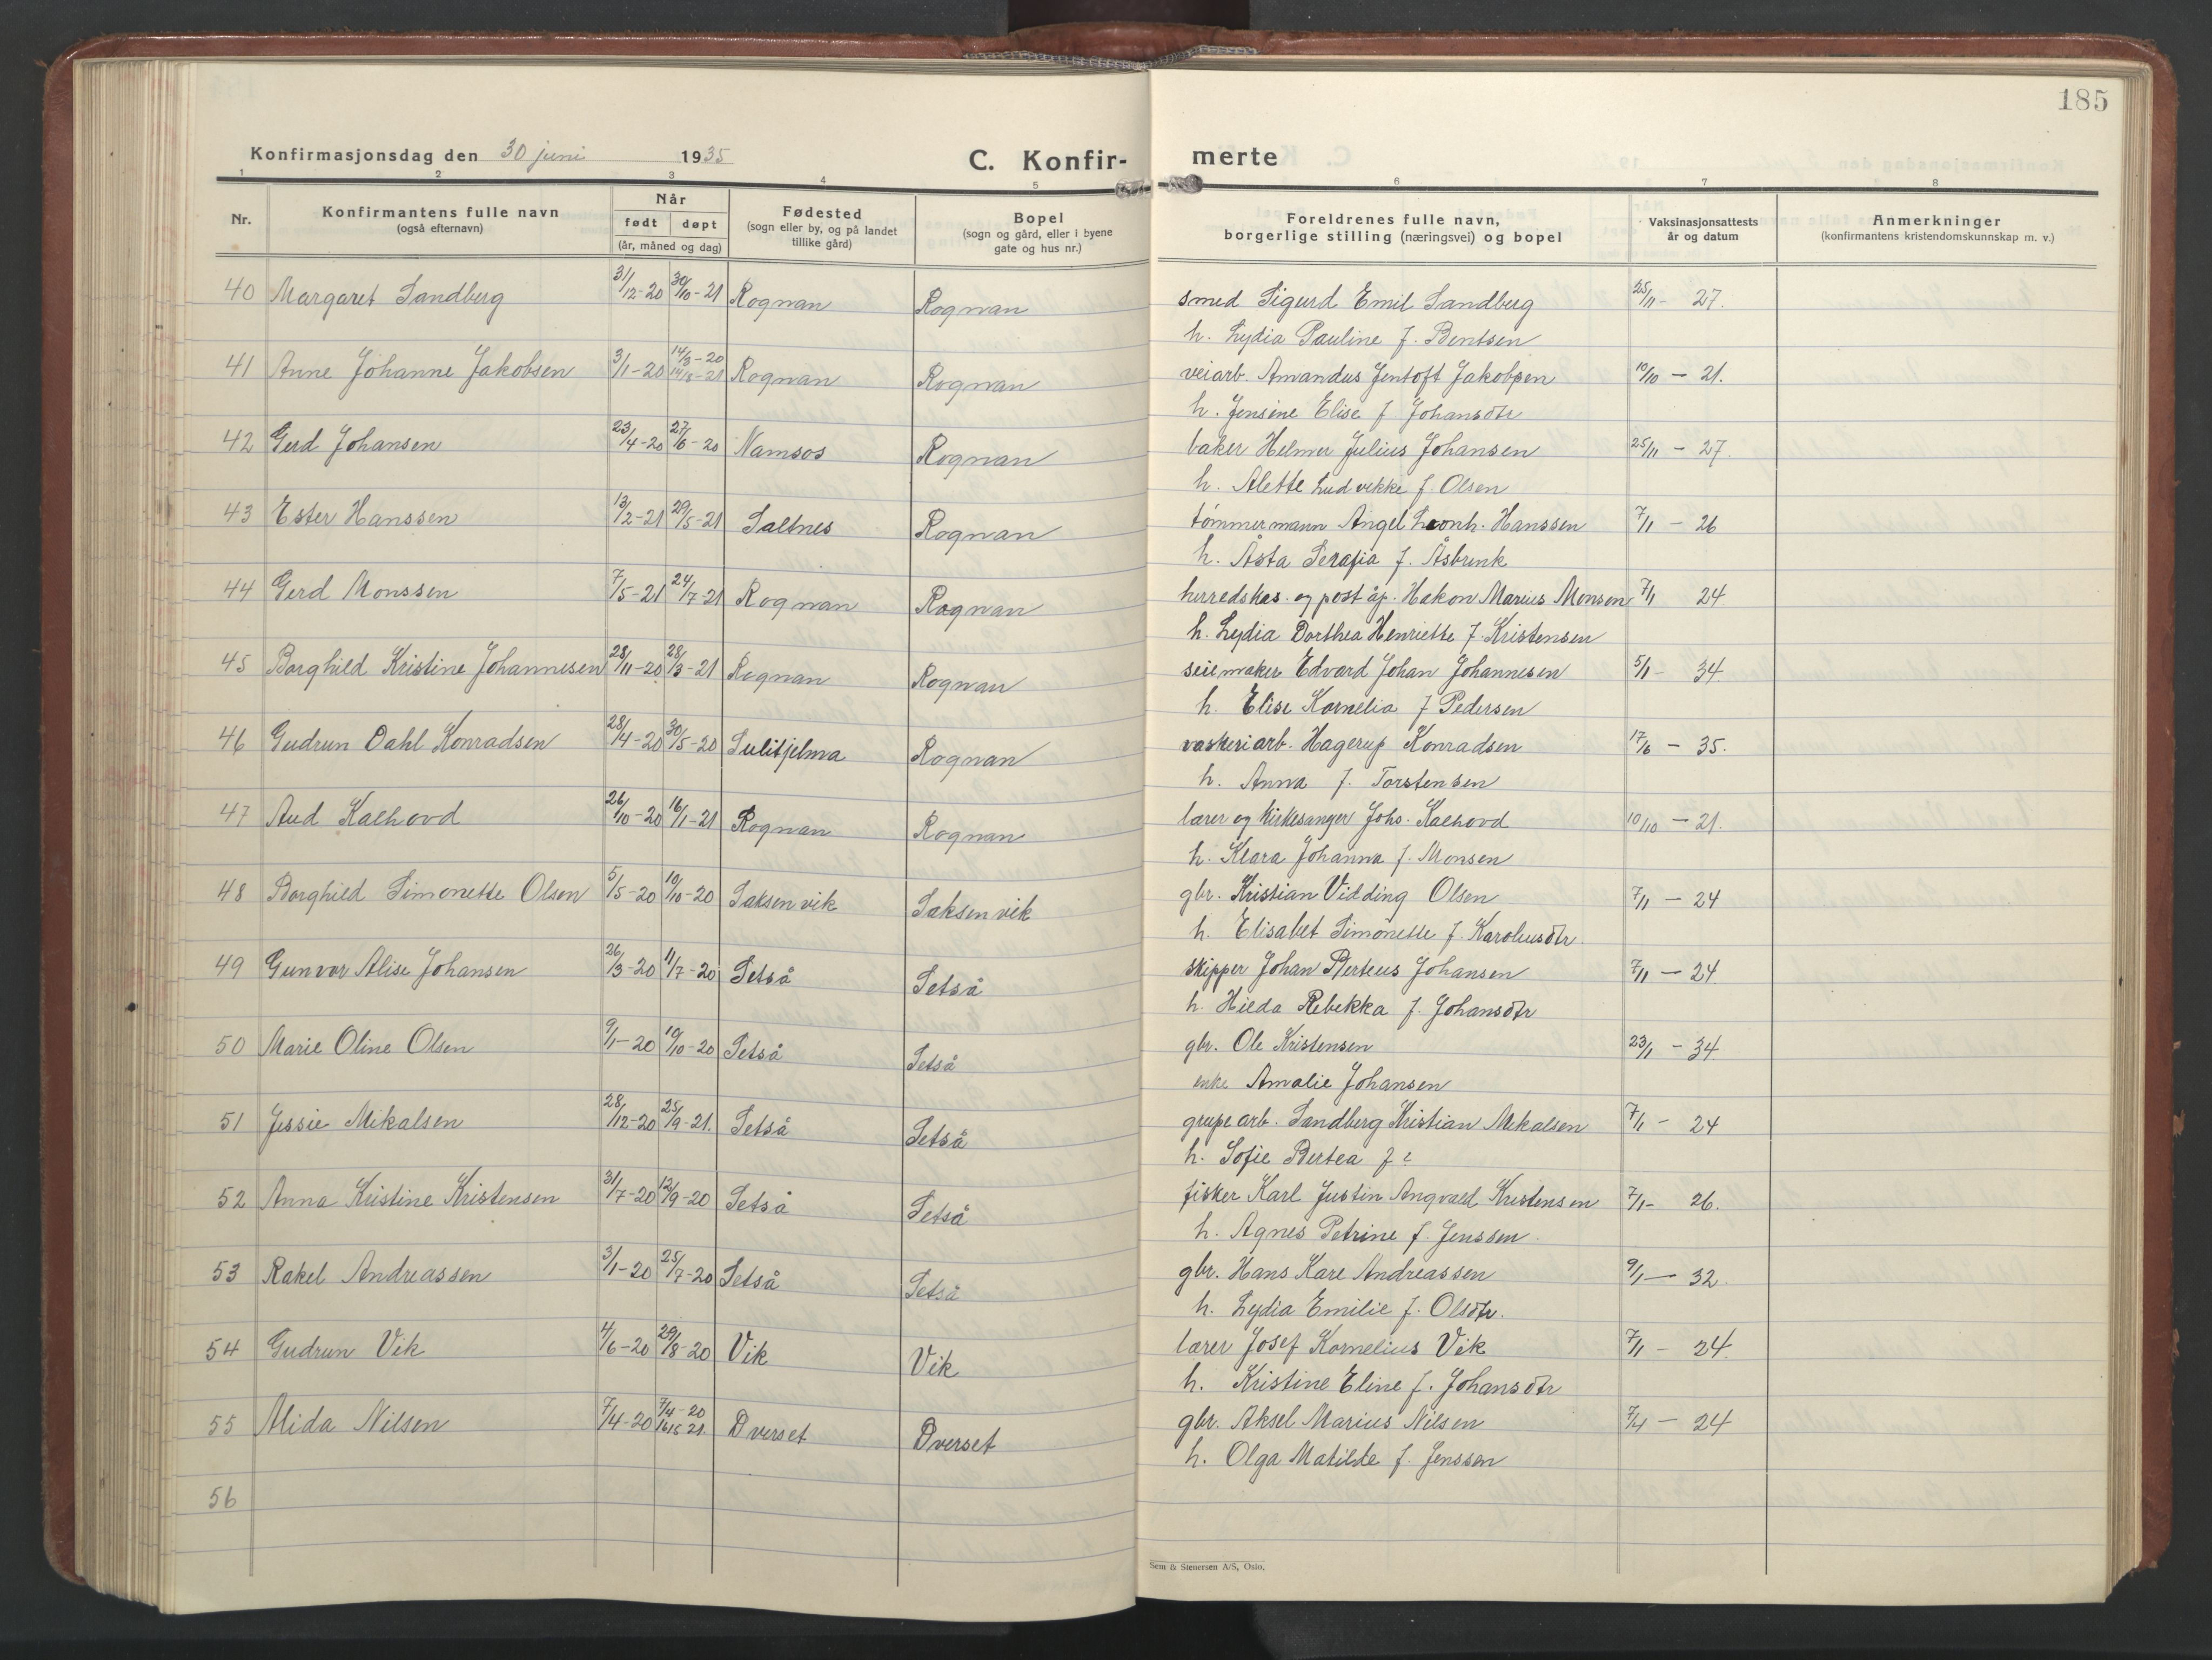 185
Konfirmasjonsdag den 30 juni 1935
C. Konfir-
merte
1 2 3 4 5 6 7 8
Nr.
Konfirmantens fulle navn
(også efternavn)
Når
født døpt
(år, måned og dag)
Fødested
(sogn eller by, og på landet
tillike gård)
Bopel
(sogn og gård, eller i byene
gate og hus nr.)
Foreldrenes fulle navn,
borgerlige stilling (næringsvei) og bopel
Vaksinasjonsattests
år og datum
Anmerkninger
(konfirmantens kristendomskunnskap m. v.)
40 Margaret Sandberg 3/12-20 30/10-21 Rognan Rognan smed Sigurd Emil Sandberg 25/11 - 27.
h. Lydia Pauline f. Bentsen
41 Anne Johanne Jakobsen 3/1-20 14/3-20 Rognan Rognan veiarb. Amandus Jentoft Jakobsen 10/10 - 21.
h. Jensine Elise f Johansdtr
42 Gerd Johansen 23/4-20 27/6-20 Namsos Rognan baker Helmer Julius Johansen 25/11 - 27.
h. Alette Ludvikke f Olsen
43 Ester Hanssen 13/2-21 29/5-21 Saltnes Rognan tömmermann Angel Leonh. Hanssen 7/11 - 26
h. Åsta Serafia f. Åsbrink
44 Gerd Monssen 7/5-21 24/7-21 Rognan Rognan herredskas. og poståp. Hakon Marius Monsen 7/1 24
h. Lydia Dorthea Henriette f. Kristensen
45 Borghild Kristine Johannesen 28/11-20 28/3-21 Rognan Rognan seilmaker Edvard Johan Johannesen 5/1 - 34
h. Elise Kornelia f Pedersen
46 Gudrun Dahl Konradsen 28/4-20 30/5-20 Sulitjelma Rognan vaskeriarb. Hagerup Konradsen 17/6 - 35.
h. Anna f. Torstensen
47 Aud Kalhovd 26/10-20 16/1-21 Rognan Rognan lærer og kirkesanger Johs. Kalhovd 10/10 - 21.
h. Klara Johanna f. Monsen
48 Borghild Simonette Olsen 5/5-20 10/10-20 Saksenvik Saksenvik gbr. Kristian Vidding Olsen 7/11 - 24
h. Elisabet Simonette f. Karoliusdtr.
49 Gunvor Alise Johansen 26/3-20 11/7-20 Setså Setså skipper Johan Berteus Johansen 7/11 - 24
h. Hilda Rebekka f. Johansdtr
50 Marie Oline Olsen 9/1-20 10/10-20 Setså Setså gbr. Ole Kristensen 23/1 - 34
enke Amalie Johansen
51 Jessie Mikalsen 28/12-20 25/9-21. Setså Setså grupearb. Sandberg Kristian Mikalsen 7/1 - 24
h. Sofie Bertea f ?
52 Anna Kristine Kristensen 31/7-20 12/9-20 Setså Setså fisker Karl Justin Angvald Kristensen 7/1 - 26.
h. Agnes Petrine f. Jenssen.
53 Rakel Andreassen 3/1-20 25/7-20 Setså Setså gbr. Hans Kare Andreassen 9/1 - 32.
h. Lydia Emilie f. Olsdtr.
54 Gudrun Vik 4/6-20 29/8-20 Vik Vik lærer Josef Kornelius Vik 7/1 - 24.
h. Kristine Eline f. Johansdtr
55 Alida Nilsen 7/4-20 7/4-20 Øverset Øverset gbr. Aksel Marius Nilsen 7/4 - 24
h. Olga Matilde f. Jenssen
56
Sem & Stenersen A/S, Oslo.